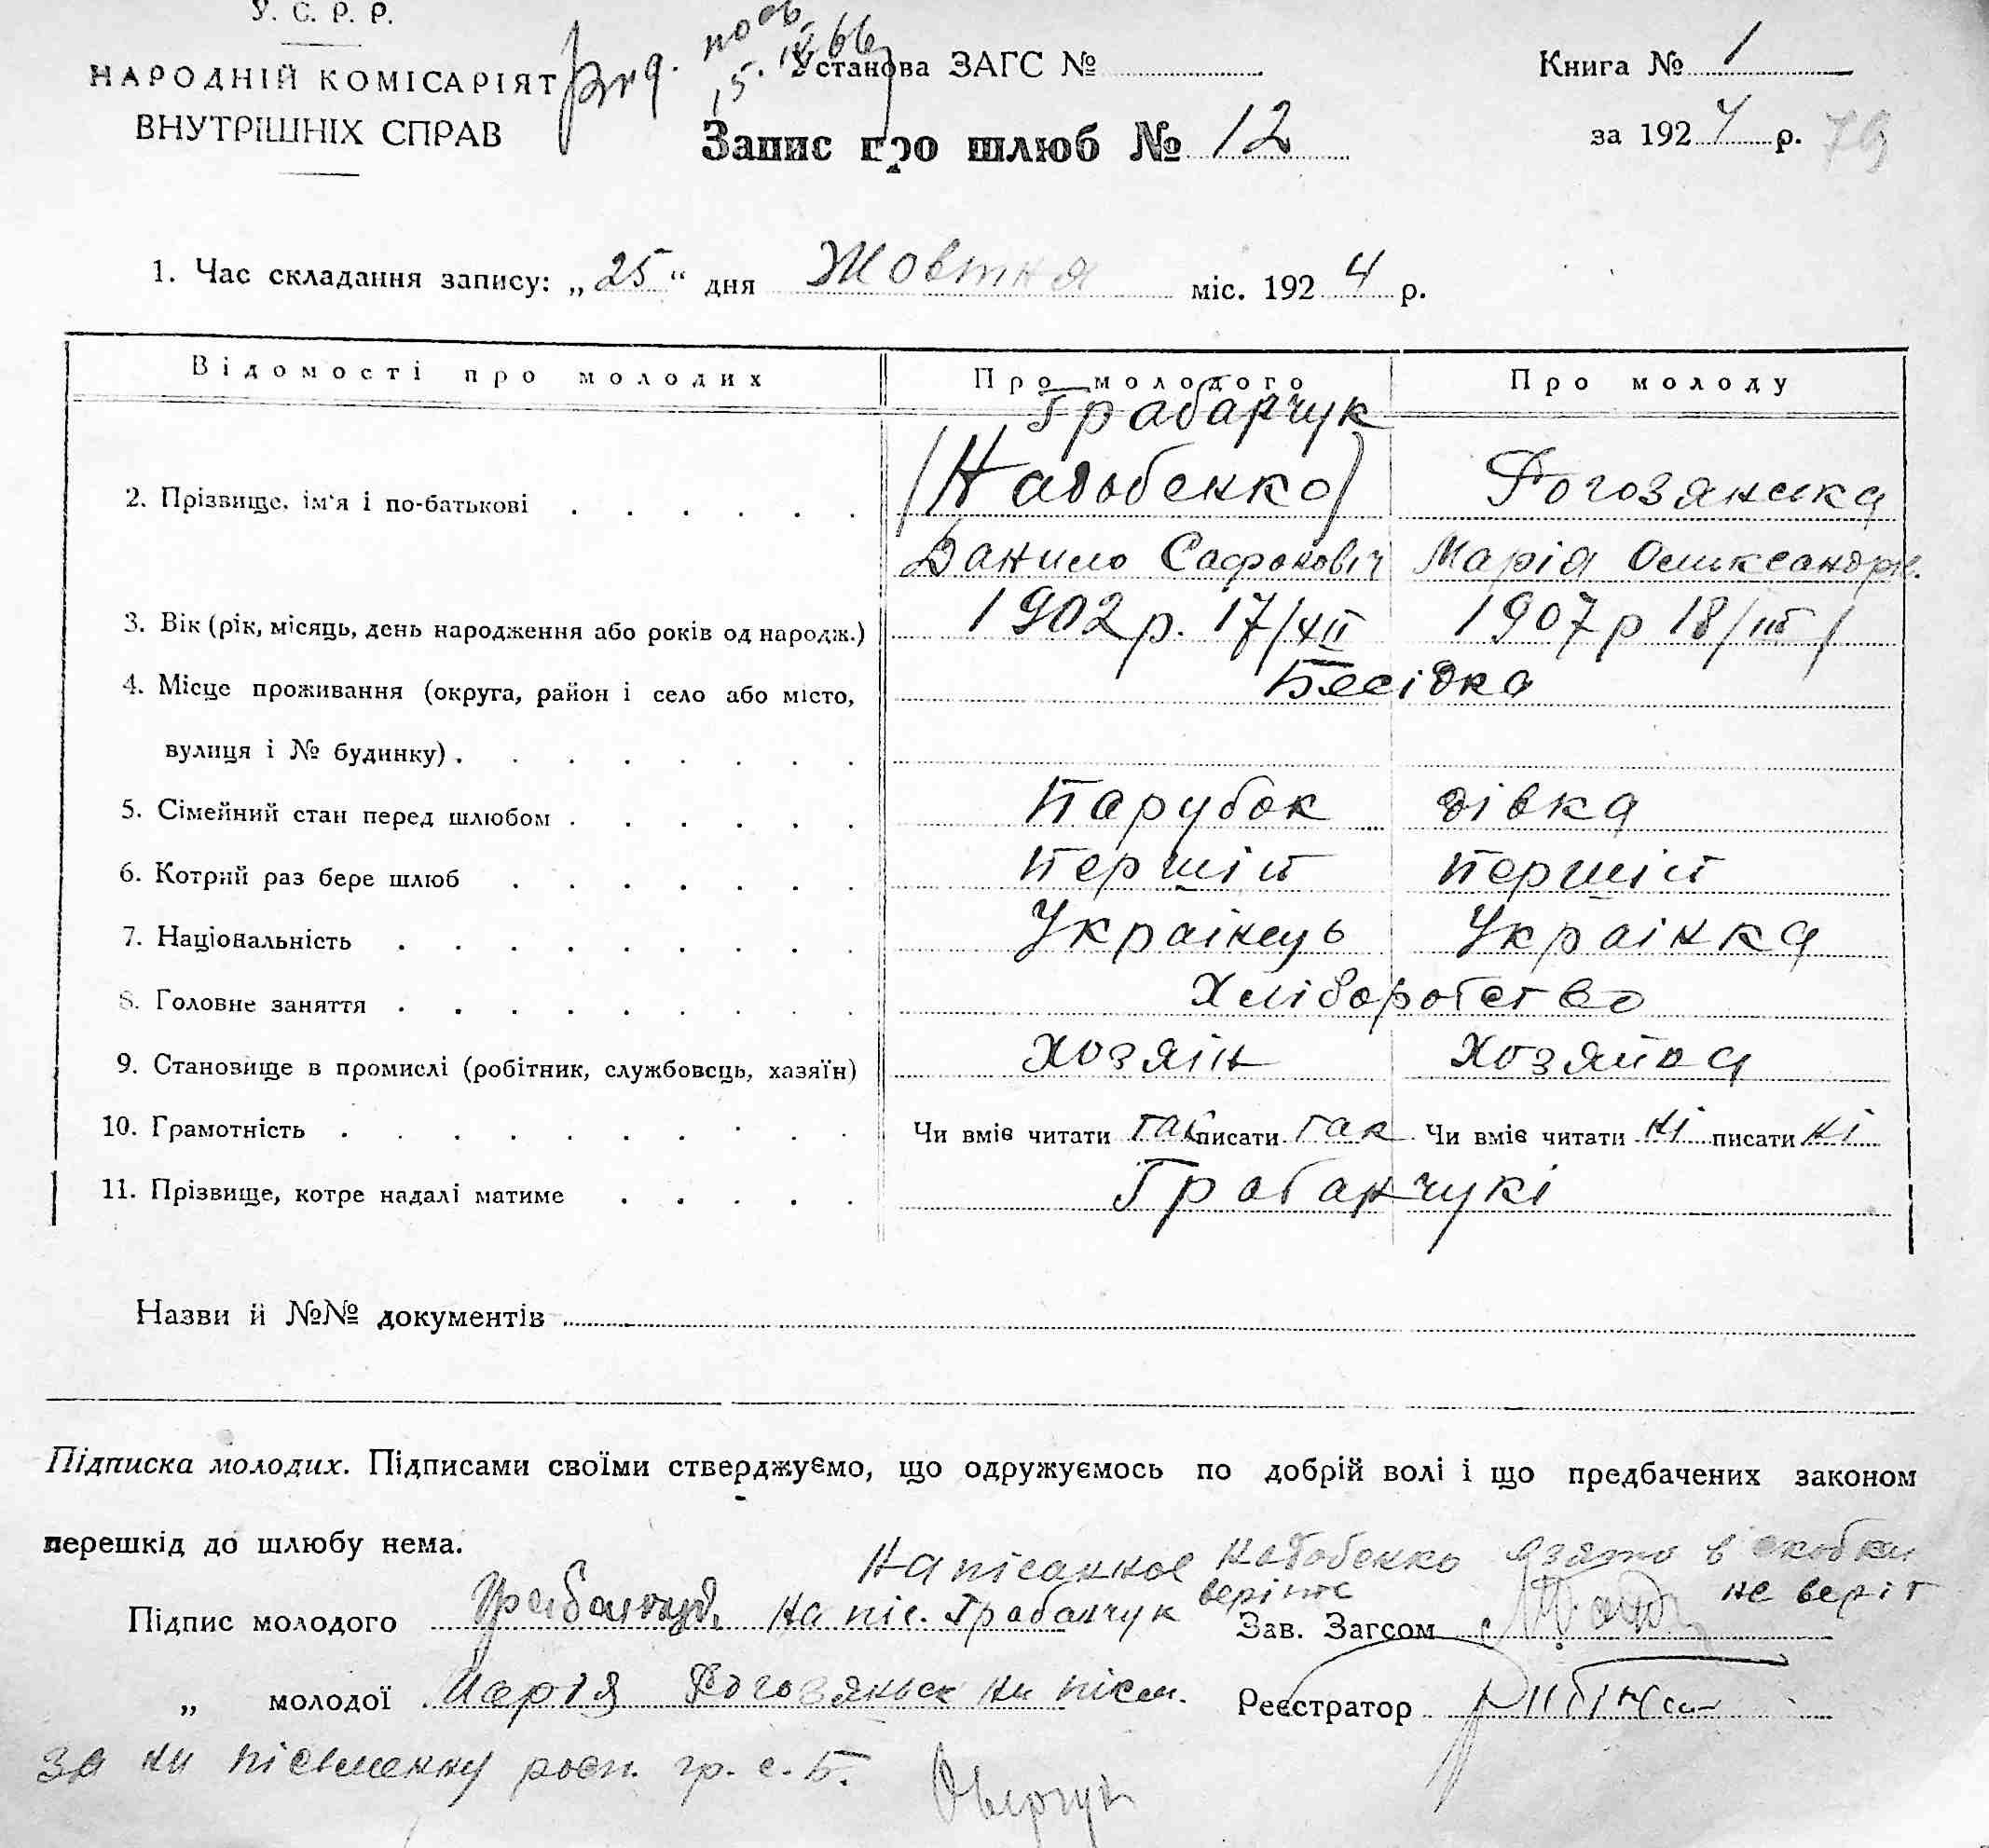 У. С. Р. Р.
НАРОДНІЙ КОМІСАРІЯТ
ВНУТРІШНІХ СПРАВ
Установа ЗАГС №
Запис про шлюб № 12
Книга № 1
за 1924 р. 79
1. Час складання запису: „25“ дня Жовтня міс. 1924 р.
Відомості про молодих Про молодого Про молоду
Грабарчук
2. Прізвище, ім‘я і по-батькові (Надобенко) Рогозянска
Данило Сафонович Марія Олександрів.
3. Вік (рік, місяць, день народження або років од народж.) 1902 р. 17/XII 1907 р 18/III
4. Місце проживання (округа, район і село або місто, Бесідка
вулиця і № будинку)
5. Сімейний стан перед шлюбом Парубок дівка
6. Котрий раз бере шлюб Першій Першій
7. Національність Украінець Украінка
8. Головне заняття Хліборобство
9. Становище в промислі (робітник, службовець, хазяїн) хозяін хозяйка
10. Грамотність Чи вміє читати так писати так Чи вміє читати ні писати ні
11. Прізвище, котре надалі матиме Грабарчукі
Назви й №№ документів
Підписка молодих. Підписами своїми стверджуємо, що одружуємось по добрій волі і що предбачених законом
перешкід до шлюбу нема.
Написанное Надобенко взято в скобки
не веріт
Підпис молодого Грабарчук напіс. Грабарчук веріть
Зав. Загсом
„ молодої Марія Рогозянск ни пісм.
Реєстратор
за ни пісьменну росп. гр. с. Б.